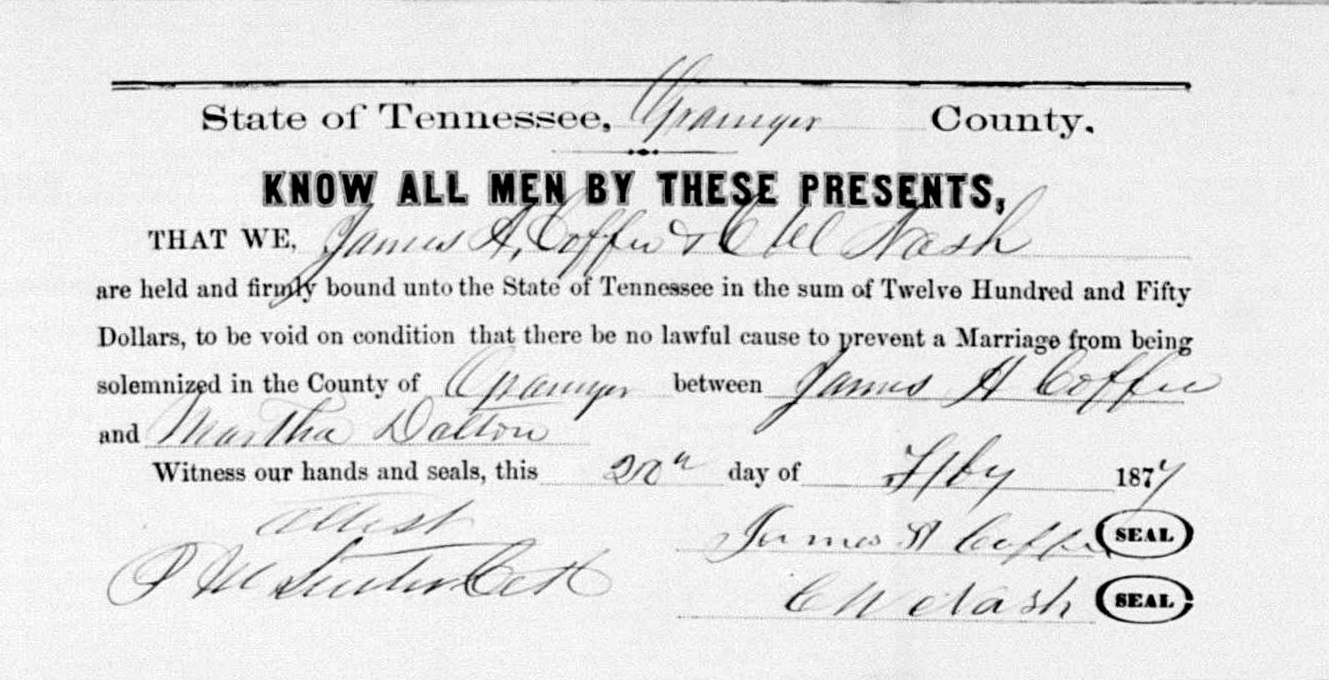 State of Tennessee, Grainger County.
KNOW ALL MEN BY THESE PRESENTS,
THAT WE, James A. Coffee & C W Nash
are held and firmly bound unto the State of Tennessee in the sum of Twelve Hundred and Fifty
Dollars, to be void on condition that there be no lawful cause to prevent a Marriage from being
solemnized in the County of Grainger between James A Coffee
and Martha Dalton
Witness our hands and seals, this 20th day of Feby 187
Attest James A Coffee SEAL
C W Nash SEAL